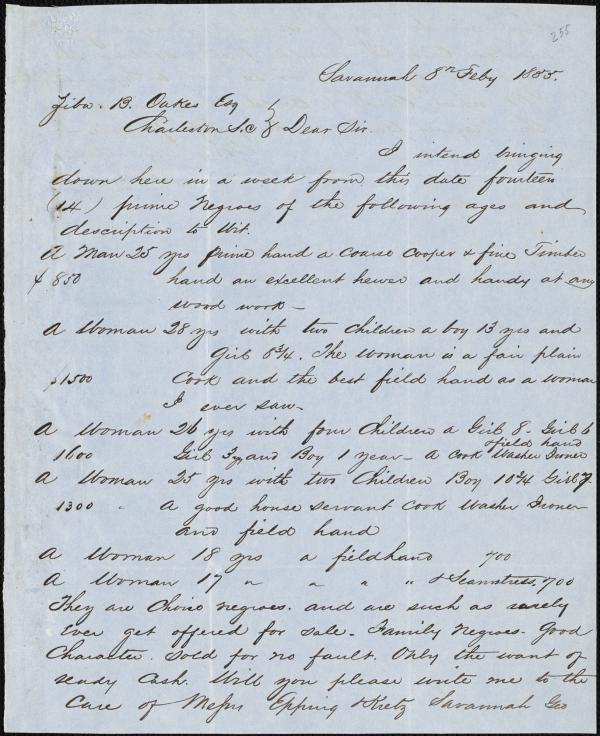 255
Savannah 8th Feby 1855.
Ziba. B. Oakes Esq
Charleston S.C } Dear Sir.
I intend bringing
down here in a week from this date fourteen
(14) prime Negroes of the following ages and
description to Wit.
A Man 25 yrs prime hand a coarse cooper & fine Timber
$850 hand an excellent hewer and handy at any
wood work –
A Woman 28 yrs with two Children a boy 13 yrs and
Girl 6¾. The woman is a fair plain
$1500 Cook and the best field hand as a woman
I ever saw –
A Woman 26 yrs with four Children a Girl 8. Girl 6
& field hand
1600 Girl 3 yrs and Boy 1 year – A cook Washer Ironer
A Woman 25 yrs with two Children Boy 10¾ Girl 7.
1300 " A good house servant Cook Washer Ironer
and field hand
A Woman 18 yrs a fieldhand 700
A Woman 17 " " " " & Seamstress. 700
They are Choice negroes. and are such as rarely
ever get offered for sale. Family Negroes. Good
Character. Sold for no fault. Only the want of
ready Cash. Will you please write me to the
Care of Messrs Epping & Kretz Savannah Geo